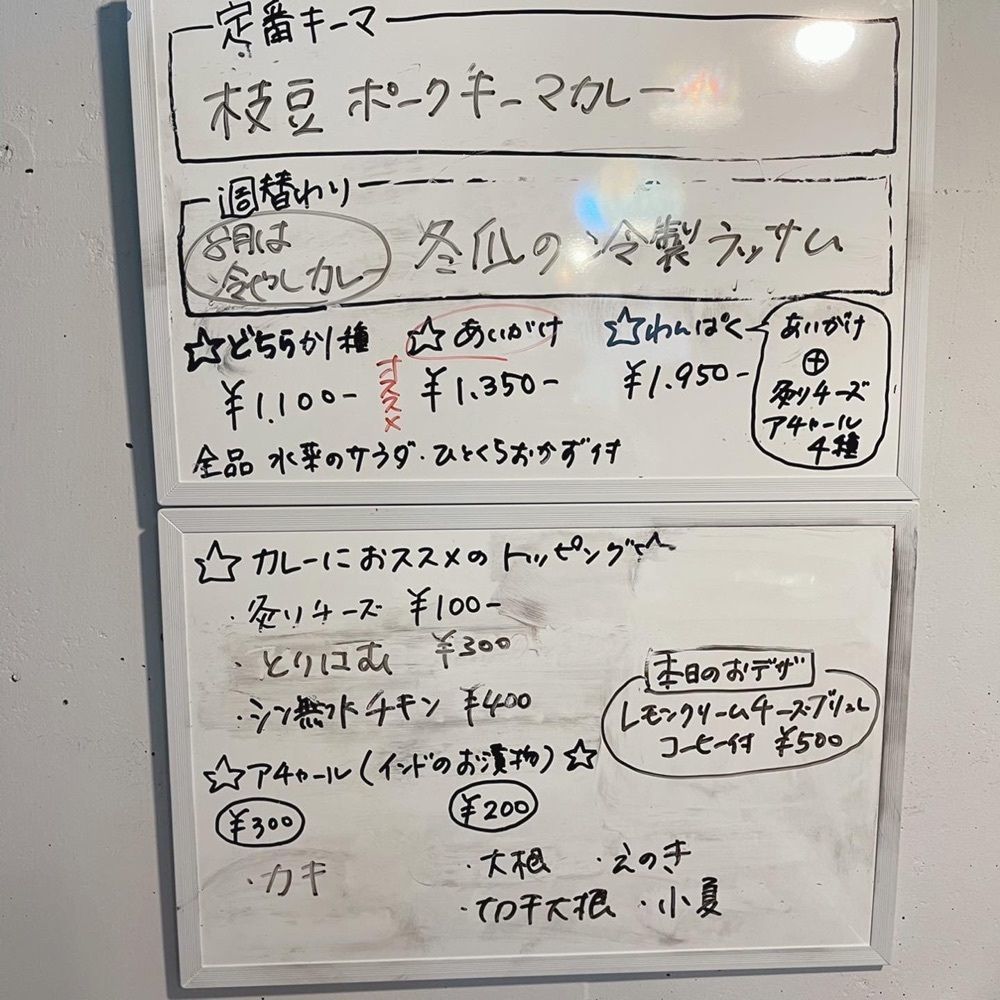 定番キーマ
枝豆 ポークキーマカレー
週替わり
8月は
冷やしカレー
冬瓜の冷製ラッサム
☆どちらか1種
¥1.100-
オススメ
☆あいがけ
¥1.350-
☆わんぱく
¥1.950-
あいがけ
⊕
炙りチーズ
アチャール
4種
全品 水菜のサラダ・ひとくちおかず付
☆ カレーにおススメのトッピング
・炙りチーズ ¥100-
・とりはむ ¥300
・シン無水チキン ¥400
本日のおデザ
レモンクリームチーズブリュレ
コーヒー付 ¥500
☆アチャール(インドのお漬物)☆
¥300
・カキ
¥200
・大根 ・えのき
・切干大根 ・小夏